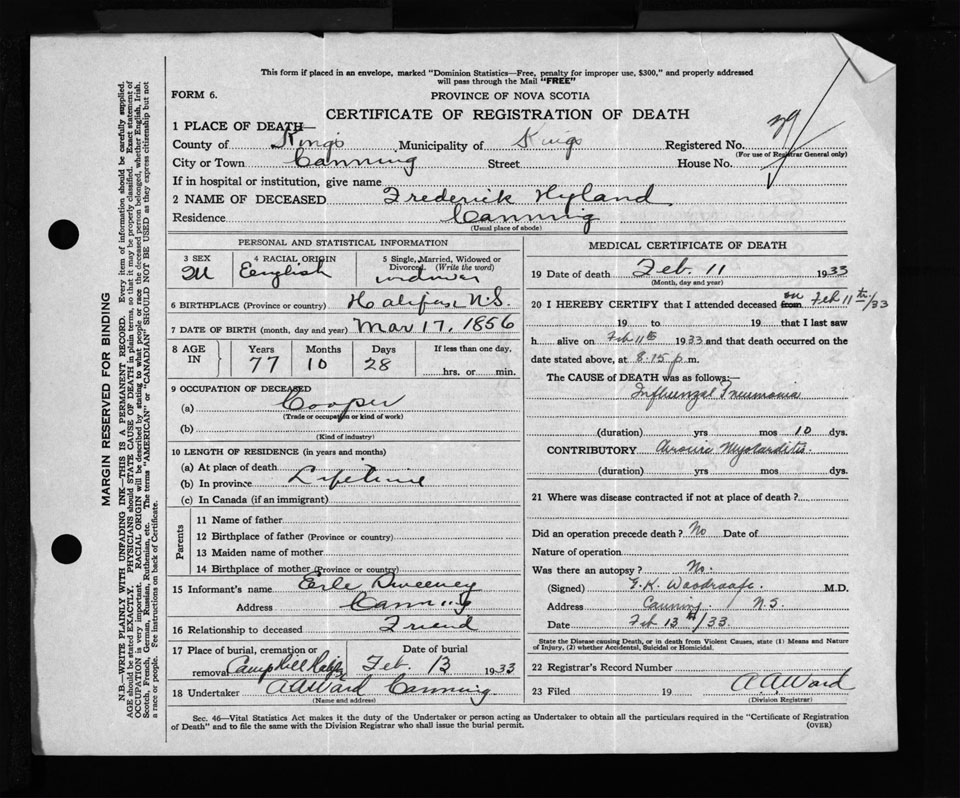 This form if placed in an envelope, marked "Dominion Statistics—Free, penalty for improper use, $300," and properly addressed
will pass through the Mail "FREE"
FORM 6.
PROVINCE OF NOVA SCOTIA
CERTIFICATE OF REGISTRATION OF DEATH
1 PLACE OF DEATH—
County of Kings Municipality of Kings Registered No. 29
(For use of Registrar General only)
City or Town Canning Street House No.
If in hospital or institution, give name
2 NAME OF DECEASED Frederick Hyland
Residence Canning
(Usual place of abode)
PERSONAL AND STATISTICAL INFORMATION
3 SEX 4 RACIAL ORIGIN 5 Single, Married, Widowed or
Divorced. (Write the word)
M English widower
6 BIRTHPLACE (Province or country) Halifax N.S.
7 DATE OF BIRTH (month, day and year) Mar 17, 1856
8 AGE IN Years Months Days If less than one day.
77 10 28 hrs. or min.
9 OCCUPATION OF DECEASED
(a) Cooper
(Trade or occupation or kind of work)
(b)
(Kind of industry)
10 LENGTH OF RESIDENCE (in years and months)
(a) At place of death
(b) In province Lifetime
(c) In Canada (if an immigrant)
Parents
11 Name of father
12 Birthplace of father (Province or country)
13 Maiden name of mother
14 Birthplace of mother (Province or country)
15 Informant's name Erle Sweeney
Address Canning
16 Relationship to deceased Friend
17 Place of burial, cremation or Date of burial
removal Camp Hill Halifx Feb. 13 1933
18 Undertaker A A Ward Canning
(Name and address)
MEDICAL CERTIFICATE OF DEATH
19 Date of death Feb. 11 1933
(Month, day and year)
20 I HEREBY CERTIFY that I attended deceased from on Feb 11th/33
19 to 19 that I last saw
h alive on Feb 11th 1933 and that death occurred on the
date stated above, at 8.15 p. m.
The CAUSE of DEATH was as follows:—
Influenzal Pneumonia
(duration) yrs mos 10 dys.
CONTRIBUTORY Chronic Myocarditis
(duration) yrs mos dys.
21 Where was disease contracted if not at place of death?
Did an operation precede death? No Date of
Nature of operation
Was there an autopsy? No.
(Signed) M.D.
Address Canning. N.S.
Date Feb 13th/33.
State the Disease causing Death, or in death from Violent Causes, state (1) Means and Nature
of Injury, (2) whether Accidental, Suicidal or Homicidal.
22 Registrar's Record Number
23 Filed 19 A.A. Ward
(Division Registrar)
Sec. 46—Vital Statistics Act makes it the duty of the Undertaker or person acting as Undertaker to obtain all the particulars required in the "Certificate of Registration
of Death" and to file the same with the Division Registrar who shall issue the burial permit. (OVER)
MARGIN RESERVED FOR BINDING
N.B.—WRITE PLAINLY WITH UNFADING INK—THIS IS A PERMANENT RECORD. Every item of information should be carefully supplied.
AGE should be stated EXACTLY. PHYSICIANS should STATE CAUSE OF DEATH in plain terms, so that it may be properly classified. Exact statement of
OCCUPATION is very important. RACIAL ORIGIN will be described by stating to what people or race the deceased person belonged, whether English, Irish,
Scotch, French, German, Russian, Ruthenian, etc. The terms "AMERICAN" or "CANADIAN" SHOULD NOT BE USED as they express citizenship but not
a race or people. See instructions on back of Certificate.